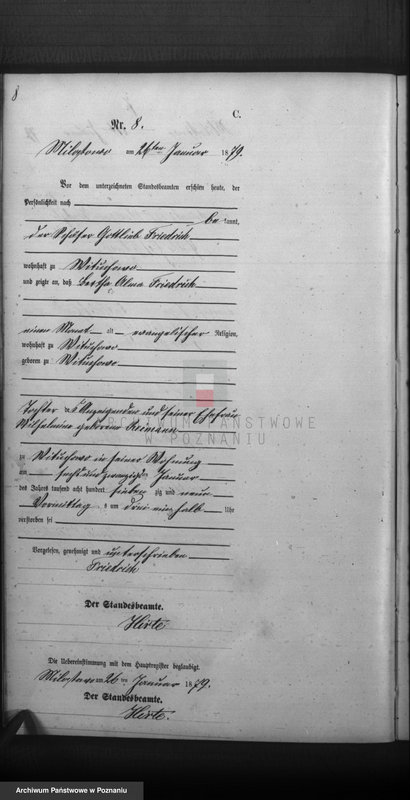 8
C.
Nr. 8.
Milostowo am 26ten Januar 1879.
Vor dem unterzeichneten Standesbeamten erschien heute, der
Persönlichkeit nach
be kannt,
der Schäfer Gottlieb Friedrich
wohnhaft zu Wituchowo
und zeigte an, daß Bertha Alma Friedrich
einen Monat alt evangelischer Religion,
wohnhaft zu Wituchowo
geboren zu Wituchowo
Tochter des Anzeigenden und seiner Ehefrau
Wilhelmine geborene Reimann
ARCHIWUM PAŃSTWOWE
W POZNANIU
zu Wituchowo in seiner Wohnung
am sechsundzwanzigsten Januar
des Jahres tausend acht hundert sieben zig und neun
Vormittag s um drei ein halb Uhr
verstorben sei
Vorgelesen, genehmigt und unterschrieben
Friedrich
Der Standesbeamte.
Hirte
Die Uebereinstimmung mit dem Hauptregister beglaubigt.
Milostowo am 26ten Januar 1879.
Der Standesbeamte.
Hirte.
Archiwum Państwowe w Poznaniu